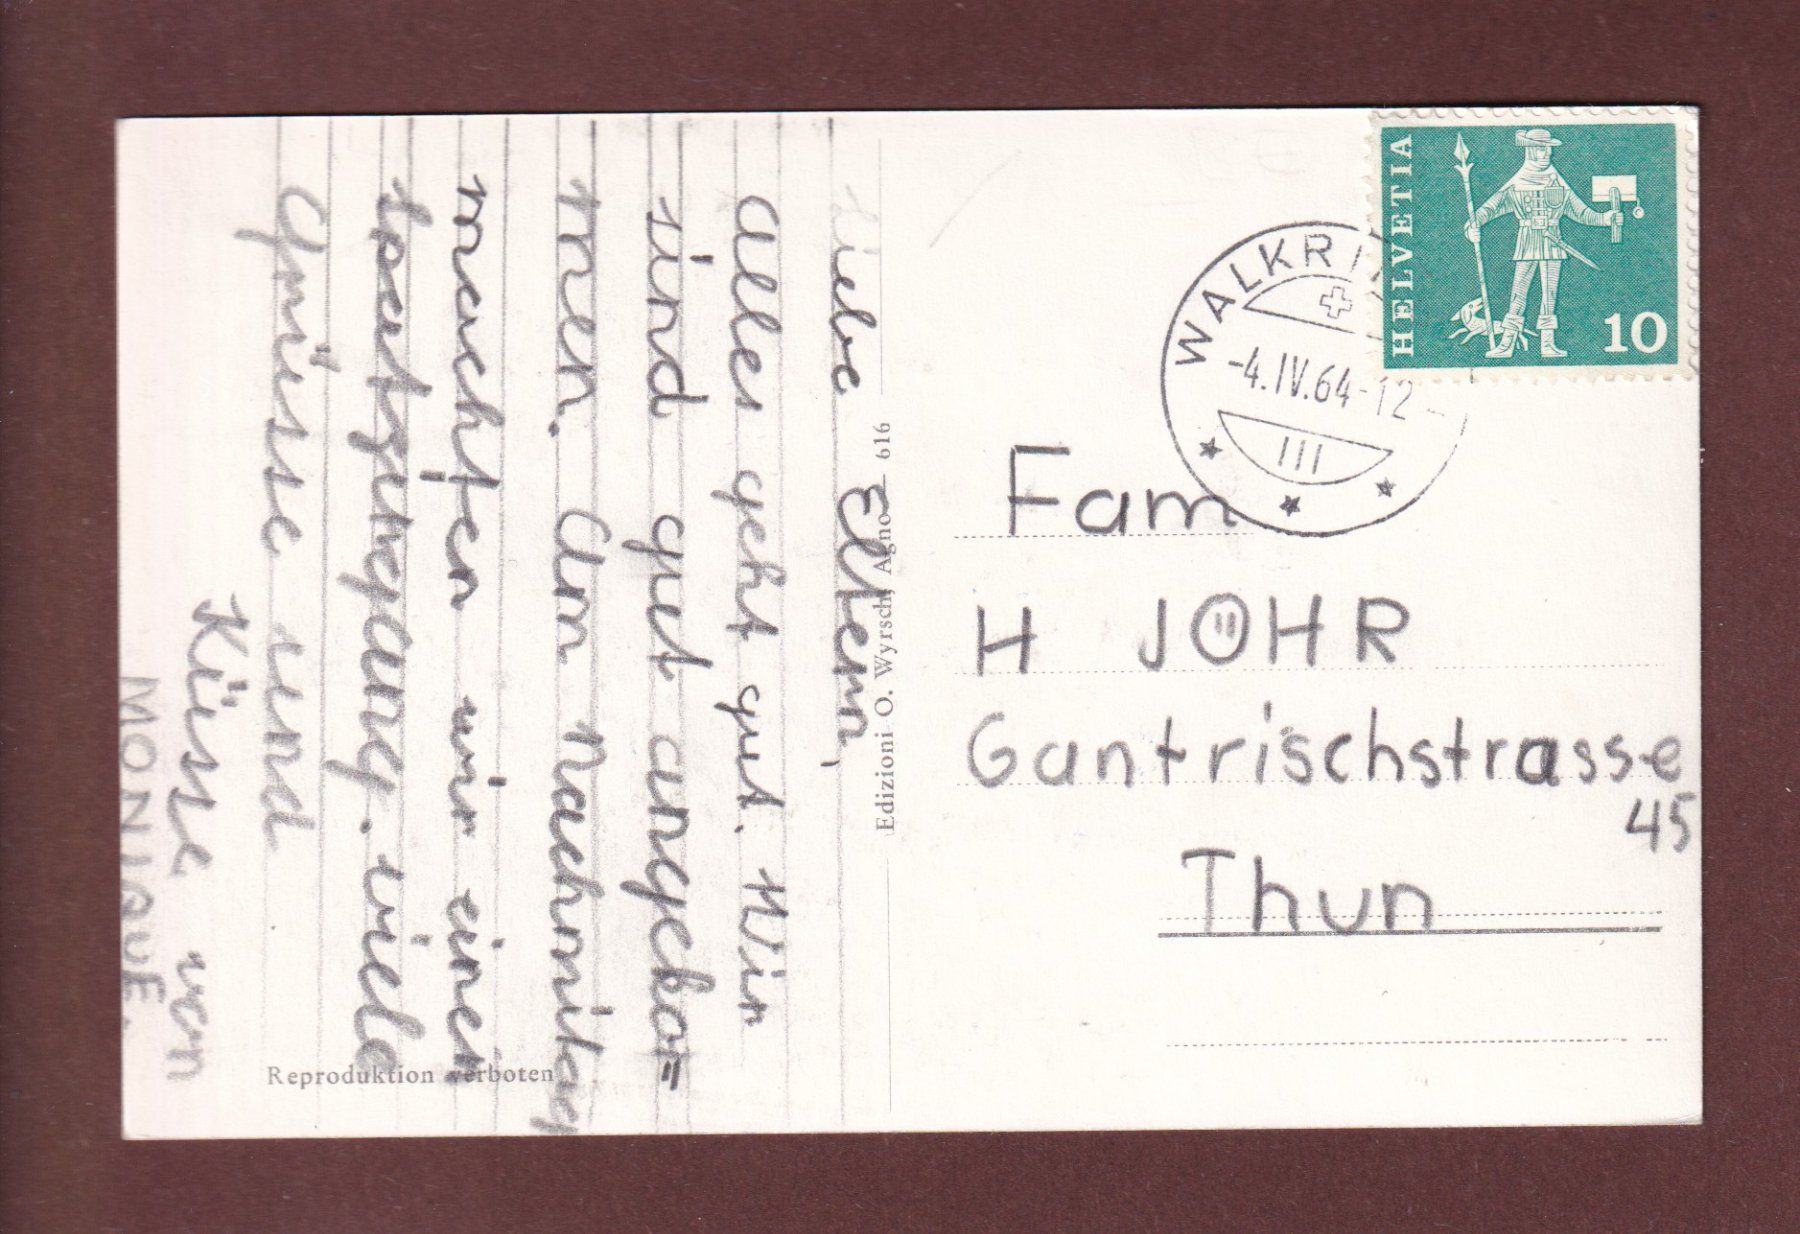 liebe Eltern,
Alles geht gut. Wir
sind gut angeko=
men. Am Nachmitag
machten wir einen
viele
Grüsse und
Küsse von
MONIQUE.
Reproduktion verboten
Edizioni O. Wyrsch, Agno – 616
HELVETIA
10
WALKRIN
-4.IV.64-12-
Fam
H JÖHR
Gantrischstrasse
45
Thun